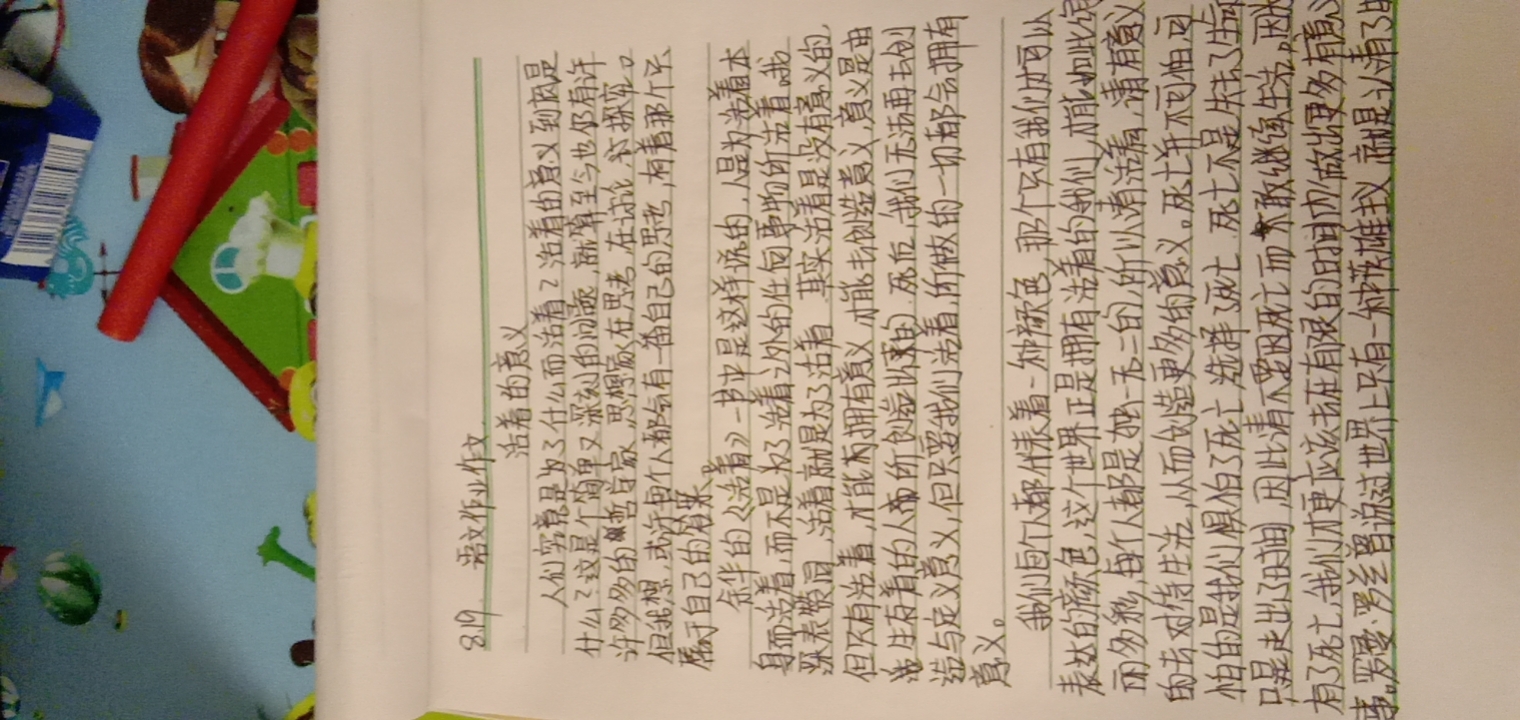 8.19 语文作业作文
活着的意义
人们究竟是为了什么而活着?活着的意义到底是
什么?这是个简单又深刻的问题,就算至今也仍有许
许多多的哲学家、思想家在思考,在讨论,在探究。
但我想,或许每个人都会有一番自己的思考,有着那个只
属于自己的答案。
余华的《活着》一书中是这样说的,人是为活着本
身而活着,而不是为了活着之外的任何事物所活着。我
深表赞同,活着就是为了活着,其实活着是没有意义的,
但只有活着,才能拥有意义,才能去创造意义,意义是由
活生生着的人而所创造出来的,死后,我们无法再去创
造与定义意义,但只要我们活着,所做的一切都会拥有
意义。
我们每个人都代表着一种颜色,那个只有我们亦可以
表达的颜色,这个世界正是拥有活着的我们,才能如此绚
丽多彩,每个人都是独一无二的,所以请活着,请有意义
的去对待生活,从而创造更多的意义。死亡并不可怕,可
怕的是我们惧怕了死亡,选择了死亡,死亡不是失去了生命,
只是走出了时间,因此请不要因死亡而不敢继续生活,因为
有了死亡,我们才更应该去在有限的时间内做出更多有意义
事。罗曼·罗兰曾说过世界上只有一种英雄主义,就是认清了